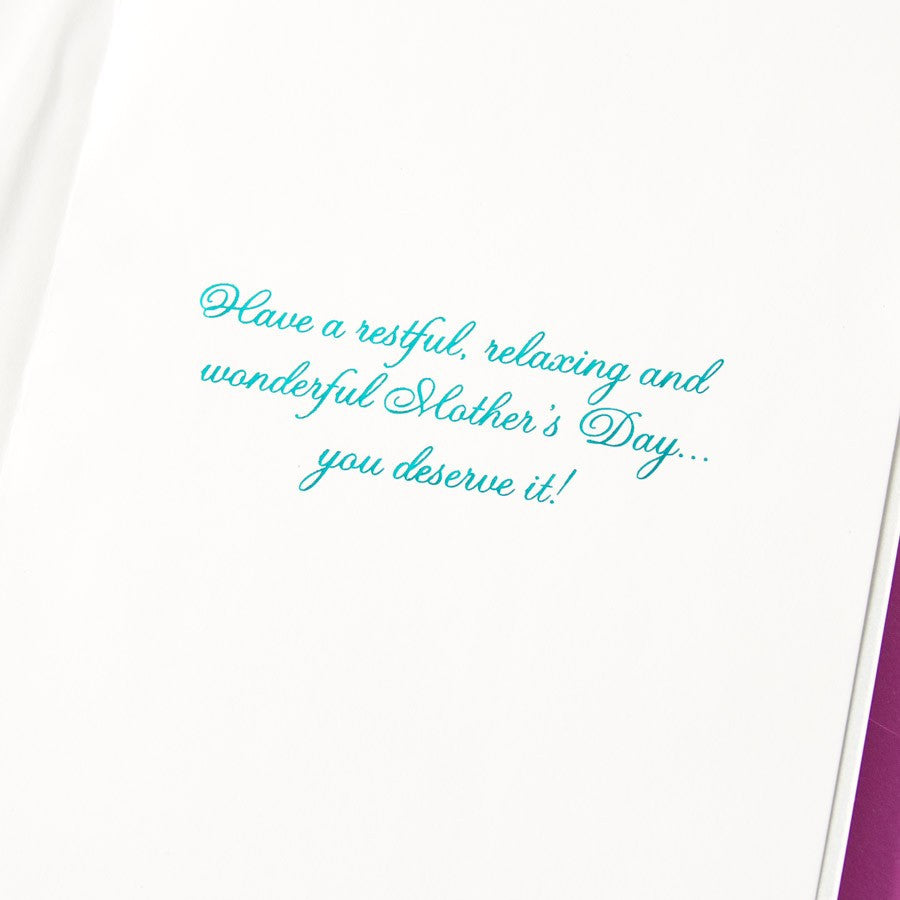 Have a restful, relaxing and
wonderful Mother's Day...
you deserve it!